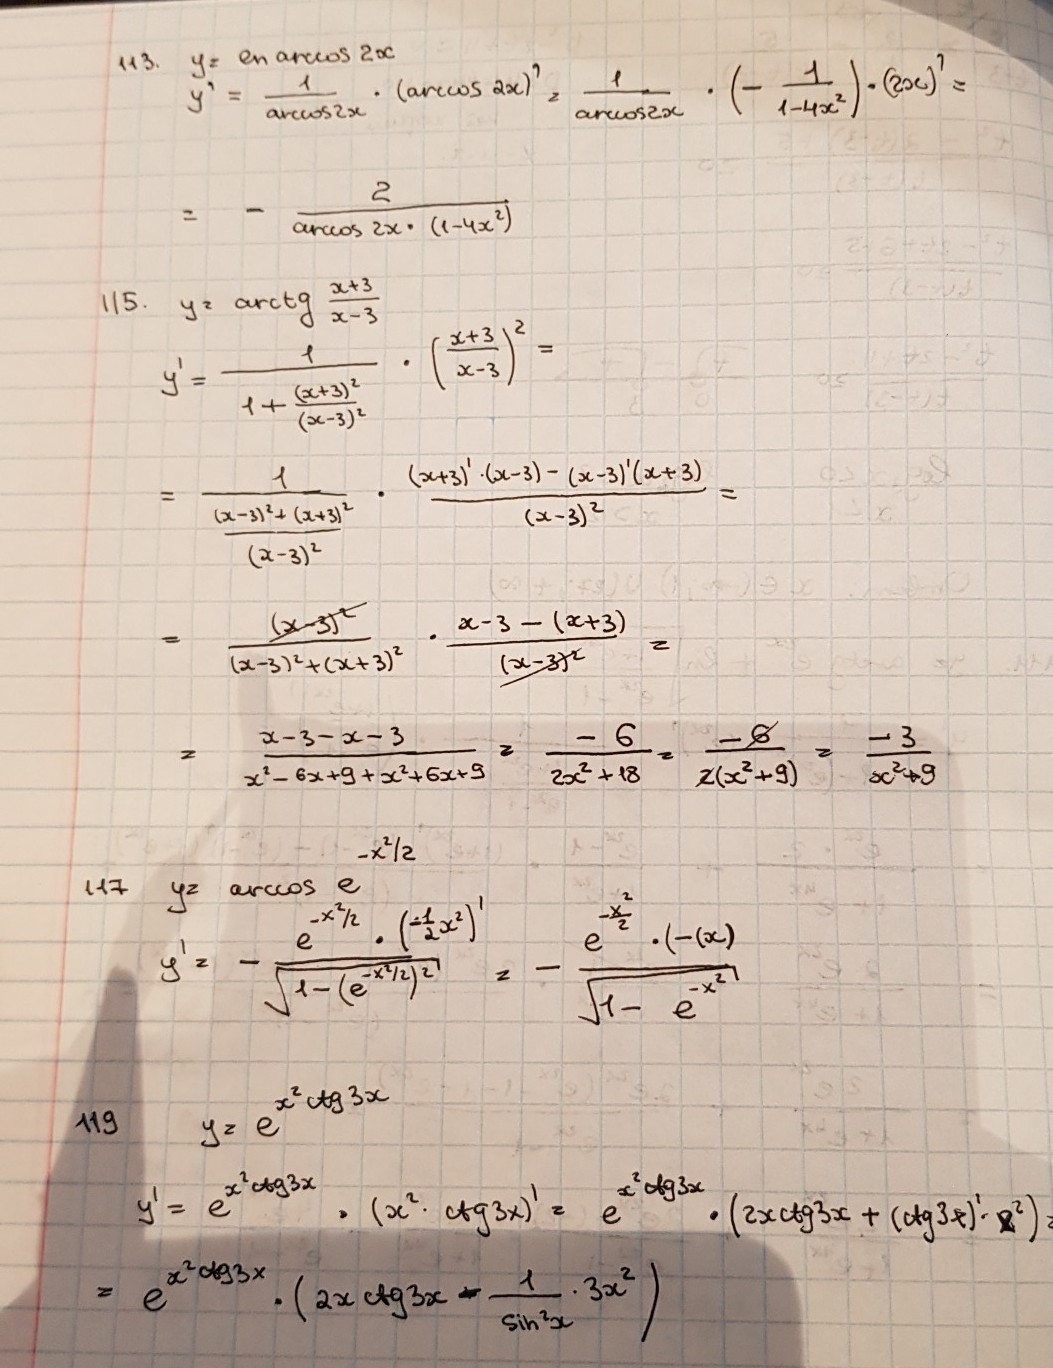 113. y = en arccos 2x
y' = 1/(arccos2x) · (arccos 2x)' = 1/(arccos2x) · (- 1/(1-4x²)) · (2x)' =
= - 2/(arccos 2x · (1-4x²))
115. y = arctg (x+3)/(x-3)
y' = 1/(1 + (x+3)²/(x-3)²) · ((x+3)/(x-3))² =
= 1/(((x-3)²+(x+3)²)/(x-3)²) · ((x+3)'·(x-3) - (x-3)'(x+3))/(x-3)² =
= (x-3)²/((x-3)²+(x+3)²) · (x-3-(x+3))/(x-3)² =
= (x-3-x-3)/(x²-6x+9+x²+6x+9) = -6/(2x²+18) = -6/(2(x²+9)) = -3/(x²+9)
117 y = arccos e^(-x²/2)
y' = - (e^(-x²/2) · (-1/2 x²)')/√(1-(e^(-x²/2))²) = - (e^(-x²/2) · (-(x))/√(1- e^(-x²))
119 y = e^(x² ctg3x)
y' = e^(x² ctg3x) · (x² · ctg3x)' = e^(x² ctg3x) · (2x ctg3x + (ctg3x)' · x²) =
= e^(x² ctg3x) · (2x ctg3x - 1/(sin²x) · 3x²)